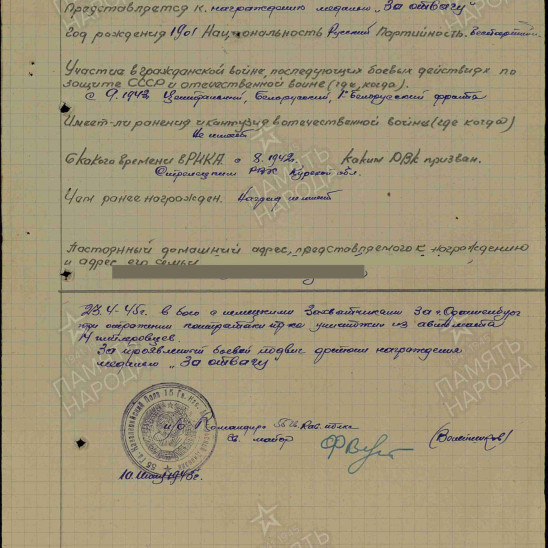 Представляется к награждению медалью "За отвагу"
Год рождения 1901 Национальность Русский Партийность Беспартийный
Участие в гражданской войне, последующих боевых действиях по
защите СССР и отечественной войне (где, когда).
с 9.1942 Центральный, Белорусский, 1 Белорусский фронта
Имеет-ли ранения и контузии в отечественной войне (где когда)
Не имеет
С какого времени в РККА с 8.1942. каким РВК призван.
РВК Курской обл.
Чем ранее награжден. Наград не имеет
Постоянный домашний адрес, представляемого к награждению
и адрес его семьи
23.4.45г. в бою с немецкими захватчиками за г. Ораниенбург
при отражении контратаки пр-ка уничтожил из автомата
гитлеровцев.
За проявленный боевой подвиг достоин награждения
медалью "За отвагу"
Командира 55 Гв. Кав. полка
Гв. майор
10 1945г.
ПАМЯТЬ
НАРОДА